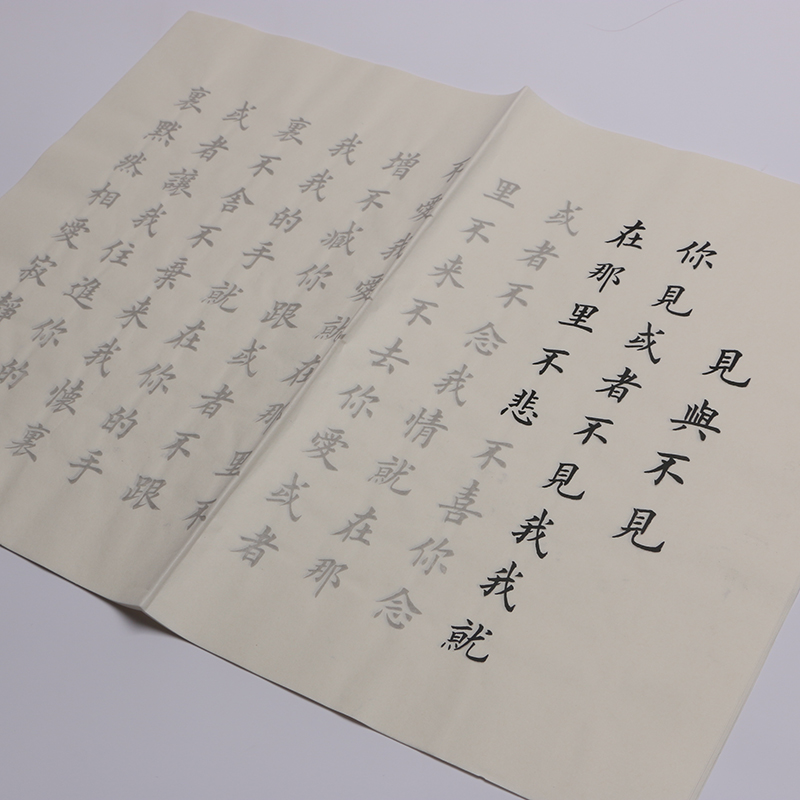 見與不見
你見或者不見我我就
在那里不悲不喜你念
或者不念我情就在那
里不来不去你愛或者
愛我愛就在那里不
增不減你跟或者不跟
我我的手就在你的手
裏不舍不棄来我懷裏
或者讓我住進你的
裏默然相愛寂靜